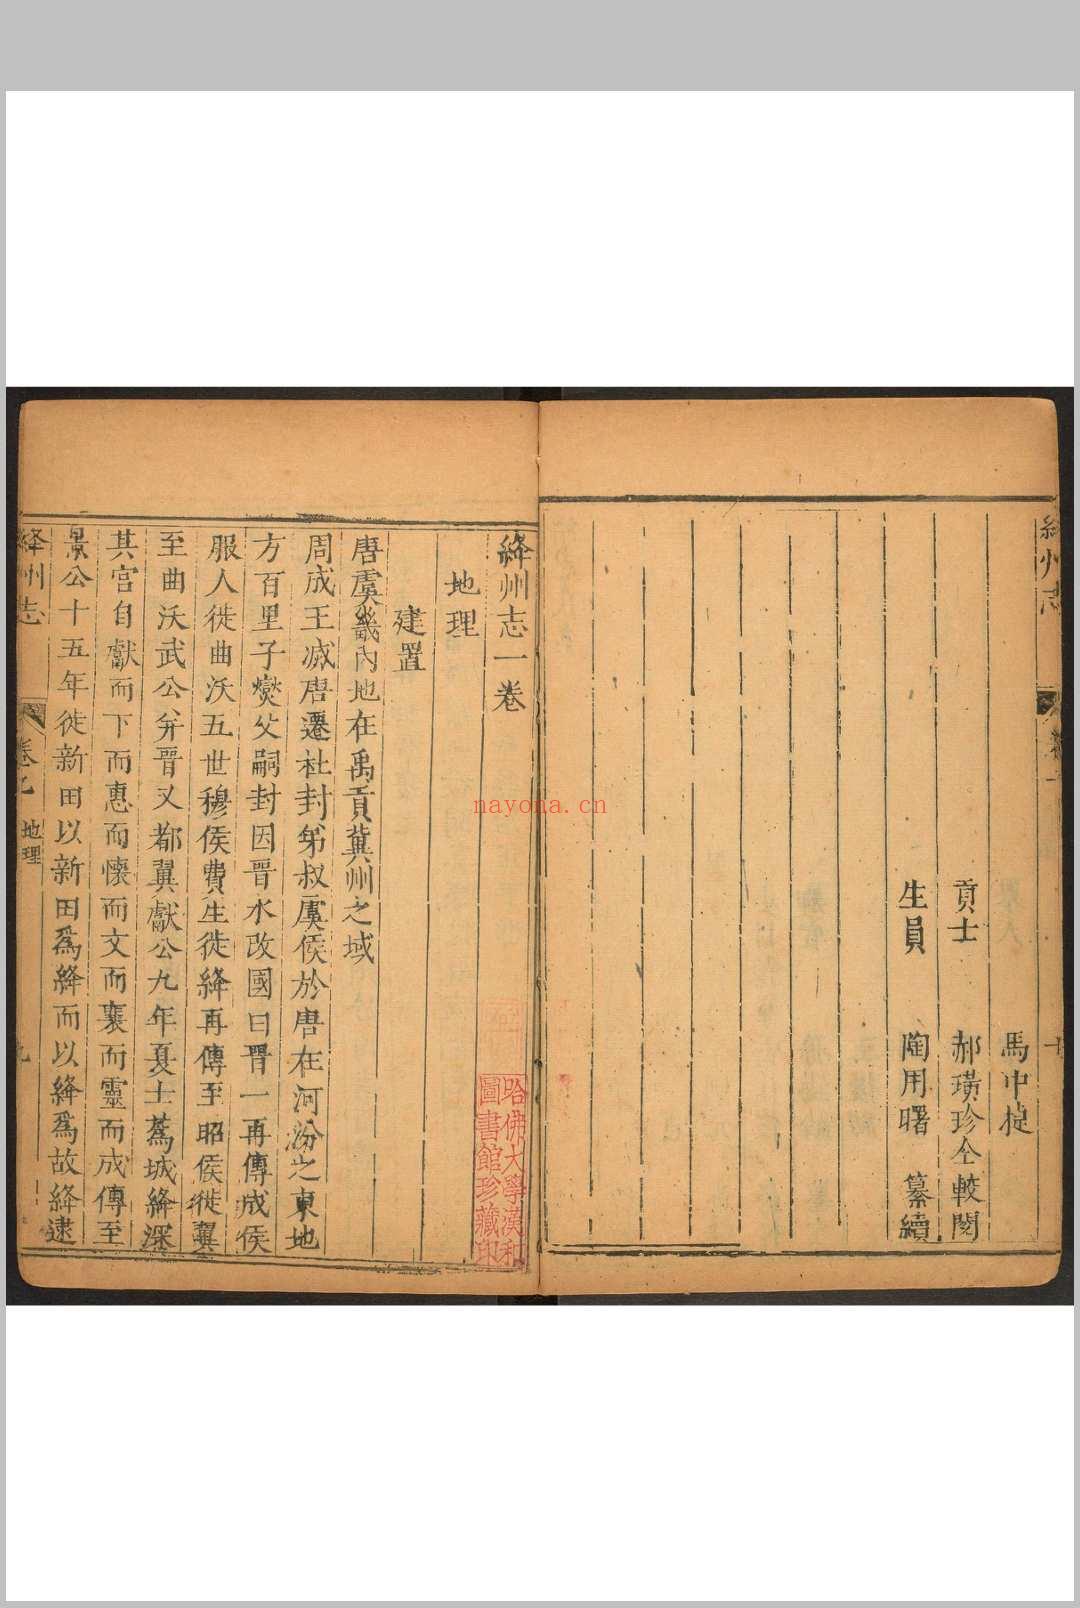 絳州志
卷一
馬中㮛
貢士
郝璜珍仝較閱
生員
陶用曙 纂續
絳州志一卷
地理
建置
唐虞畿內地在禹貢冀州之域
周成王滅唐遷杜封弟叔虞侯於唐在河汾之東地
方百里子燮父嗣封因晉水改國曰晉一再傳成侯
服人徙曲沃五世穆侯費生徙絳再傳至昭侯徙翼
至曲沃武公并晉又都翼獻公九年夏士蒍城絳深
其宮自獻而下而惠而懷而文而襄而靈而成傳至
景公十五年徙新田以新田爲絳而以絳爲故絳逮
絳州志
卷之
地理
哈佛大學漢和
圖書館珍藏印
nayona.cn